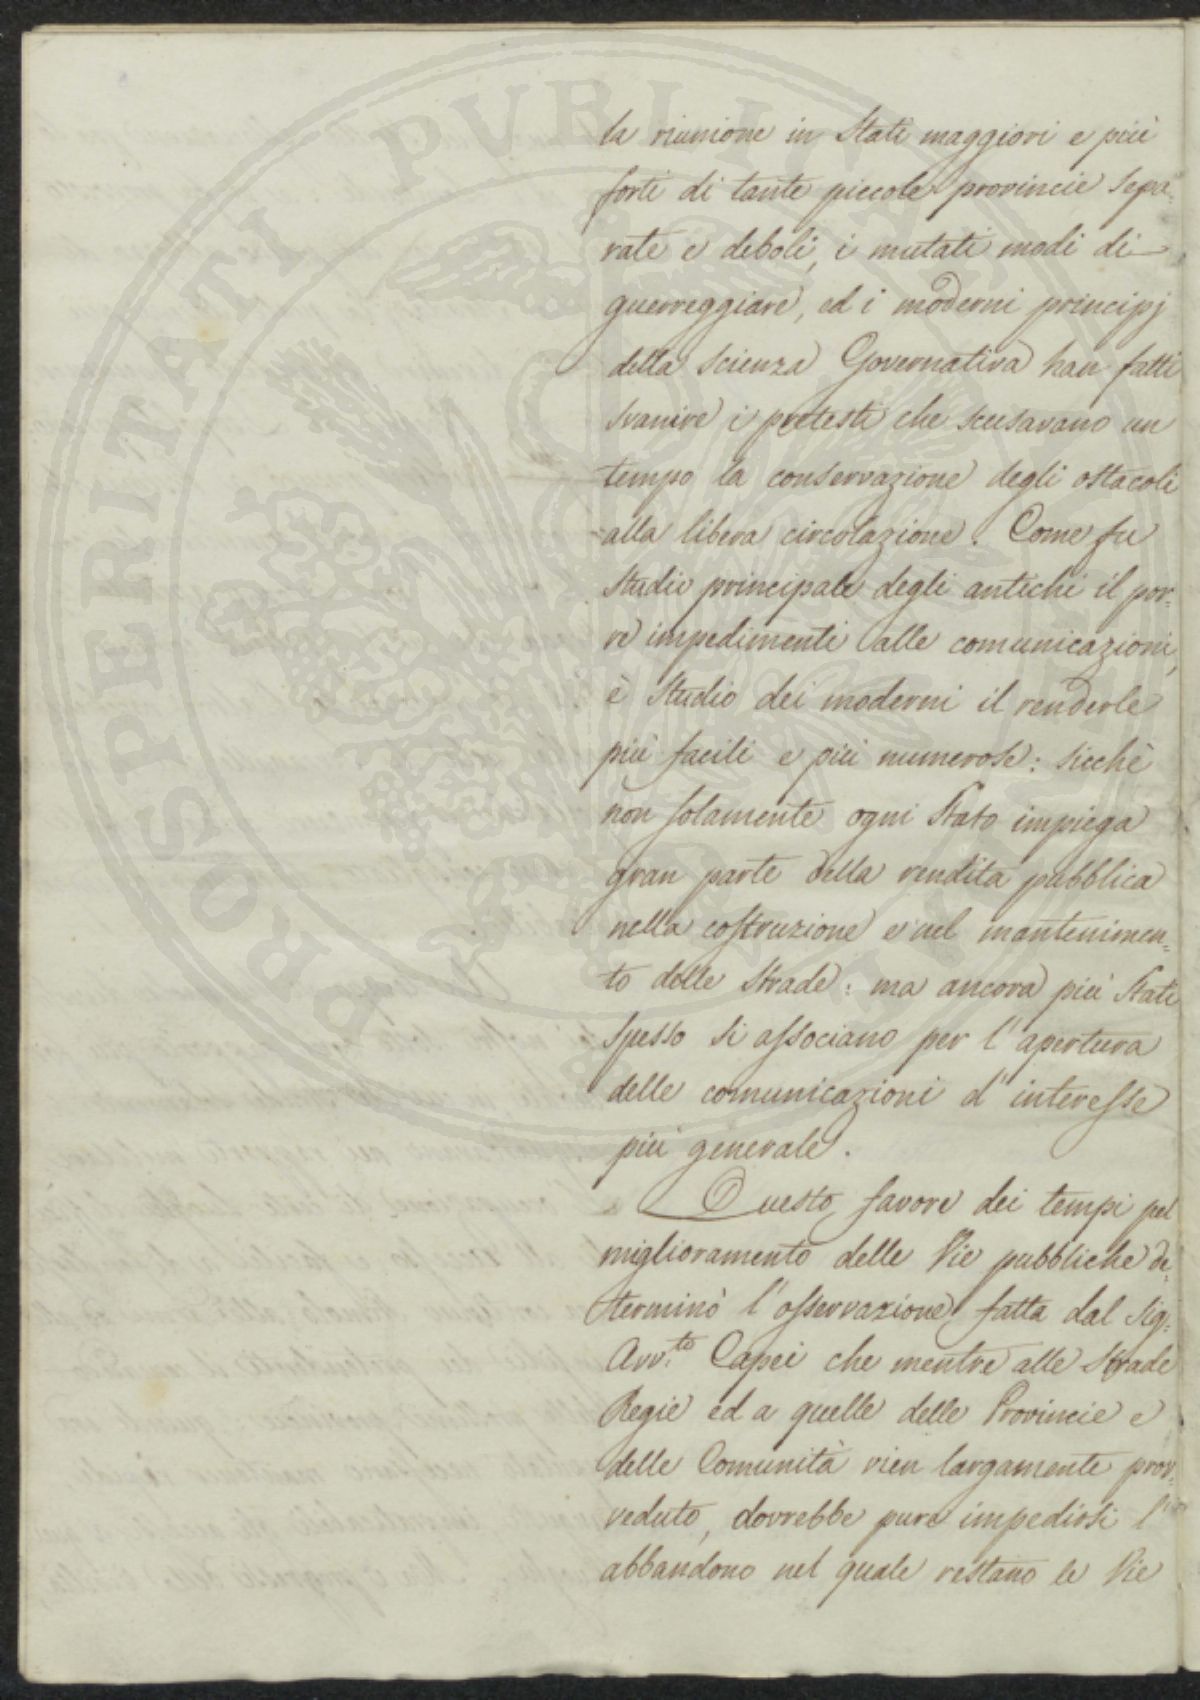 la riunione in Stati maggiori e più
forti di tante piccole provincie sepa=
rate e deboli, i mutati modi di
guerreggiare, ed i moderni principj
della scienza Governativa han fatti
svanire i pretesti che scusavano un
tempo la conservazione degli ostacoli
alla libera circolazione. Come fu
studio principale degli antichi il por=
re impedimenti alle comunicazioni,
è studio dei moderni il renderle
più facili e più numerose: sicchè
non solamente ogni Stato impiega
gran parte della rendita pubblica
nella costruzione e nel mantenimen=
to delle strade: ma ancora più Stati
spesso si associano per l'apertura
delle comunicazioni d'interesse
più generale.
Questo favore dei tempi pel
miglioramento delle Vie pubbliche de=
terminò l'osservazione fatta dal Sig.
Avv.to Capei che mentre alle Strade
Regie ed a quelle delle Provincie e
delle Comunità vien largamente prov=
veduto, dovrebbe pure impedirsi l'
abbandono nel quale restano le Vie
PROSPERITATI PUBLICAE